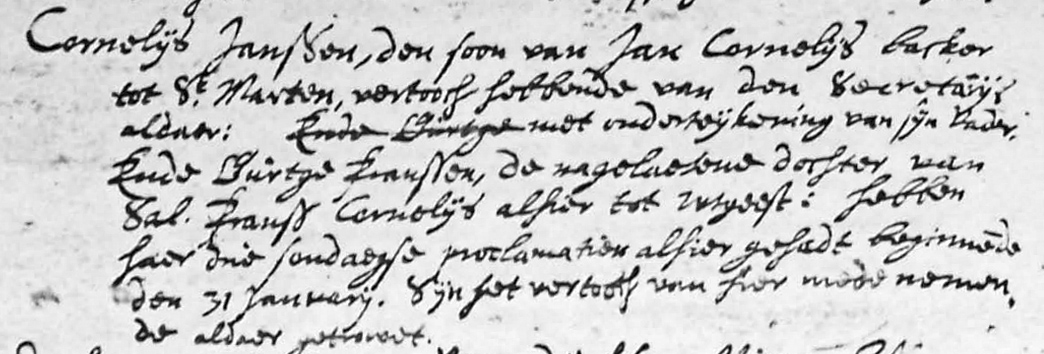 Cornelijs Janssen, den soon van Jan Cornelijs backer
tot St. Marten, vertooch hebbende van den Secretarijs
aldaer: Ende Duertge met onderteijkening van sijn Vader.
Ende Duertge Franssen, de nagelatene dochter van
Sal. Franss Cornelijs alhier tot Utgeest: hebben
haer drie sondaegse proclamatien alhier gehadt beginnende
den 31 Januarij. Sijn het vertooch van hier mede nemen,
de aldaer getrouwet.